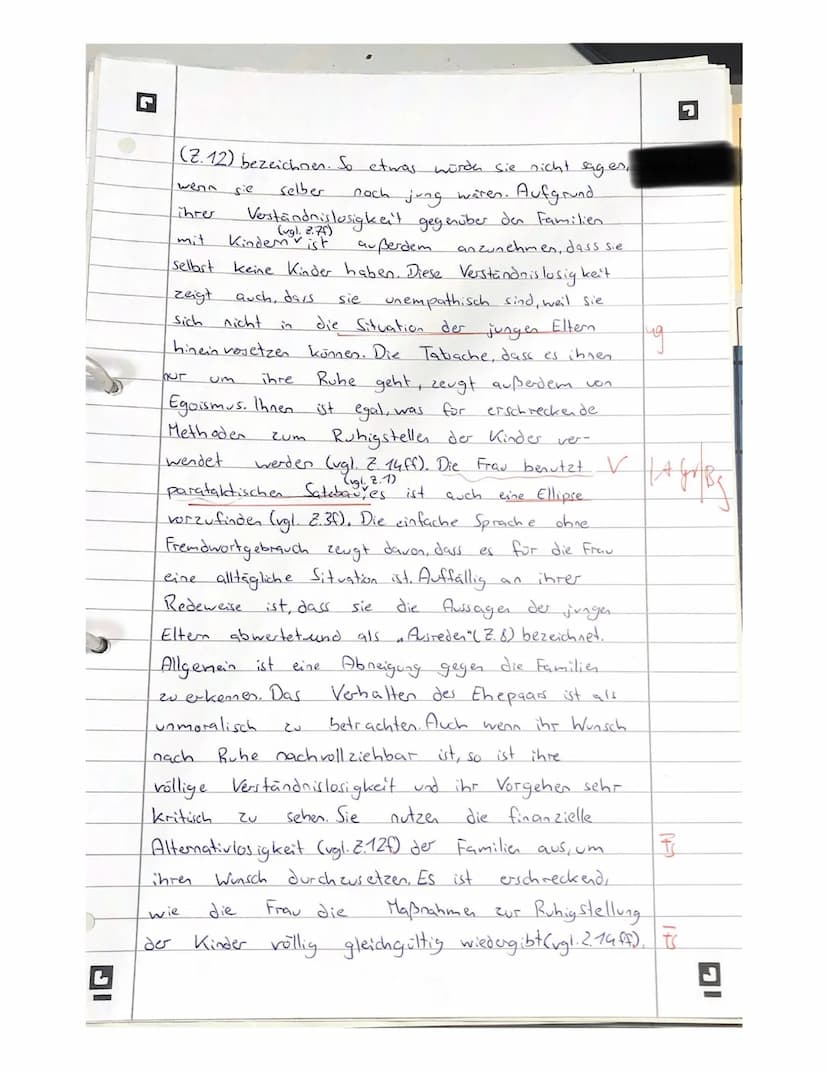 (Z.12) bezeichnen. So etwas würden sie nicht sagen,
wenn sie selber noch jung wären. Aufgrund
ihrer Verständnislosigkeit gegenüber den Familien
(vgl. Z.7f)
mit Kindern ist außerdem anzunehmen, dass sie
selbst keine Kinder haben. Diese Verständnislosigkeit
zeigt auch, dass sie unempathisch sind, weil sie
sich nicht in die Situation der jungen Eltern
ug
hineinversetzen können. Die Tabache, dass es ihnen
nur um ihre Ruhe geht, zeugt außerdem von
Egoismus. Ihnen ist egal, was für erschreckende
Methoden zum Ruhigstellen der Kinder ver-
wendet werden (vgl. Z. 14ff). Die Frau benutzt V
(vgl. Z.1)
parataktischen Satzbau, es ist auch eine Ellipse
vorzufinden (vgl. Z.3f). Die einfache Sprache ohne
Fremdwortgebrauch zeugt davon, dass es für die Frau
eine alltägliche Situation ist. Auffällig an ihrer
Redeweise ist, dass sie die Aussagen der jungen
Eltern abwertet und als „Ausreden" (Z.8) bezeichnet.
Allgemein ist eine Abneigung gegen die Familien
zu erkennen. Das Verhalten des Ehepaars ist als
unmoralisch zu betrachten. Auch wenn ihr Wunsch
nach Ruhe nachvollziehbar ist, so ist ihre
völlige Verständnislosigkeit und ihr Vorgehen sehr
kritisch zu sehen. Sie nutzen die finanzielle
Alternativlosigkeit (vgl. Z.12f) der Familien aus, um
ihren Wunsch durchzusetzen. Es ist erschreckend,
wie die Frau die Maßnahmen zur Ruhigstellung
der Kinder völlig gleichgültig wiedergibt (vgl. Z.14ff).